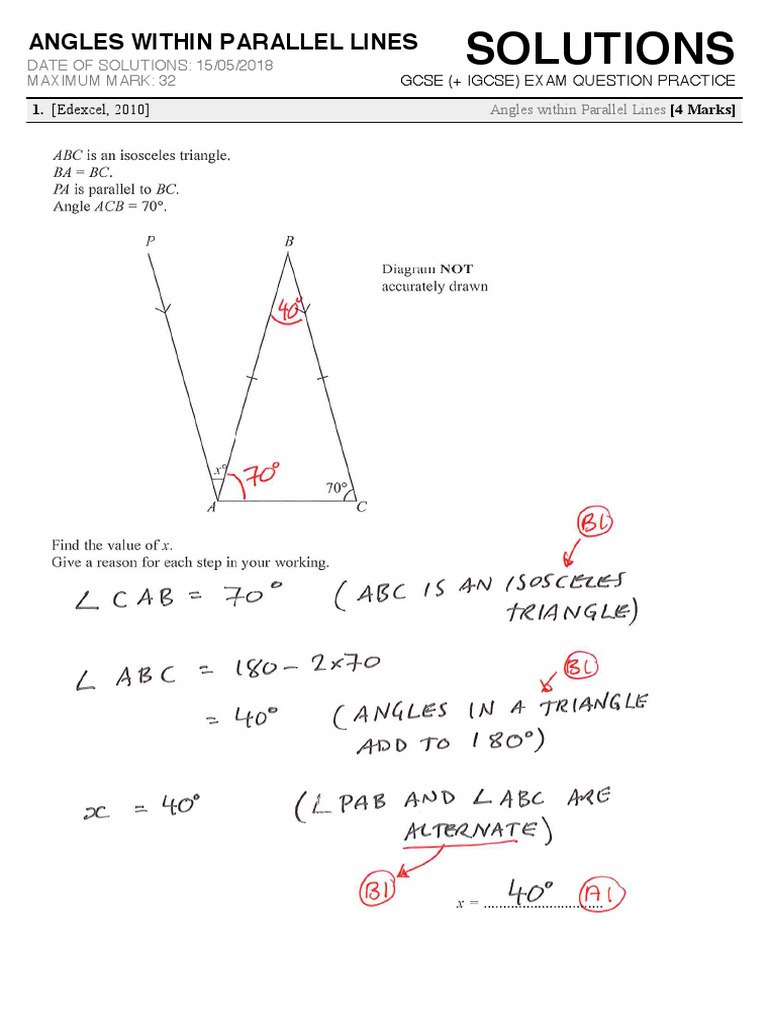 ANGLES WITHIN PARALLEL LINES
SOLUTIONS
DATE OF SOLUTIONS: 15/05/2018
MAXIMUM MARK: 32
GCSE (+ IGCSE) EXAM QUESTION PRACTICE
1. [Edexcel, 2010]
Angles within Parallel Lines [4 Marks]
ABC is an isosceles triangle.
BA = BC.
PA is parallel to BC.
Angle ACB = 70°.
P
B
Diagram NOT
accurately drawn
40°
x°
70°
70°
A
C
B1
Find the value of x.
Give a reason for each step in your working.
∠ CAB = 70° (ABC IS AN ISOSCELES
TRIANGLE)
∠ ABC = 180 - 2x70
B1
= 40° (ANGLES IN A TRIANGLE
ADD TO 180°)
x = 40° (∠ PAB AND ∠ ABC ARE
ALTERNATE)
B1
x = 40° A1